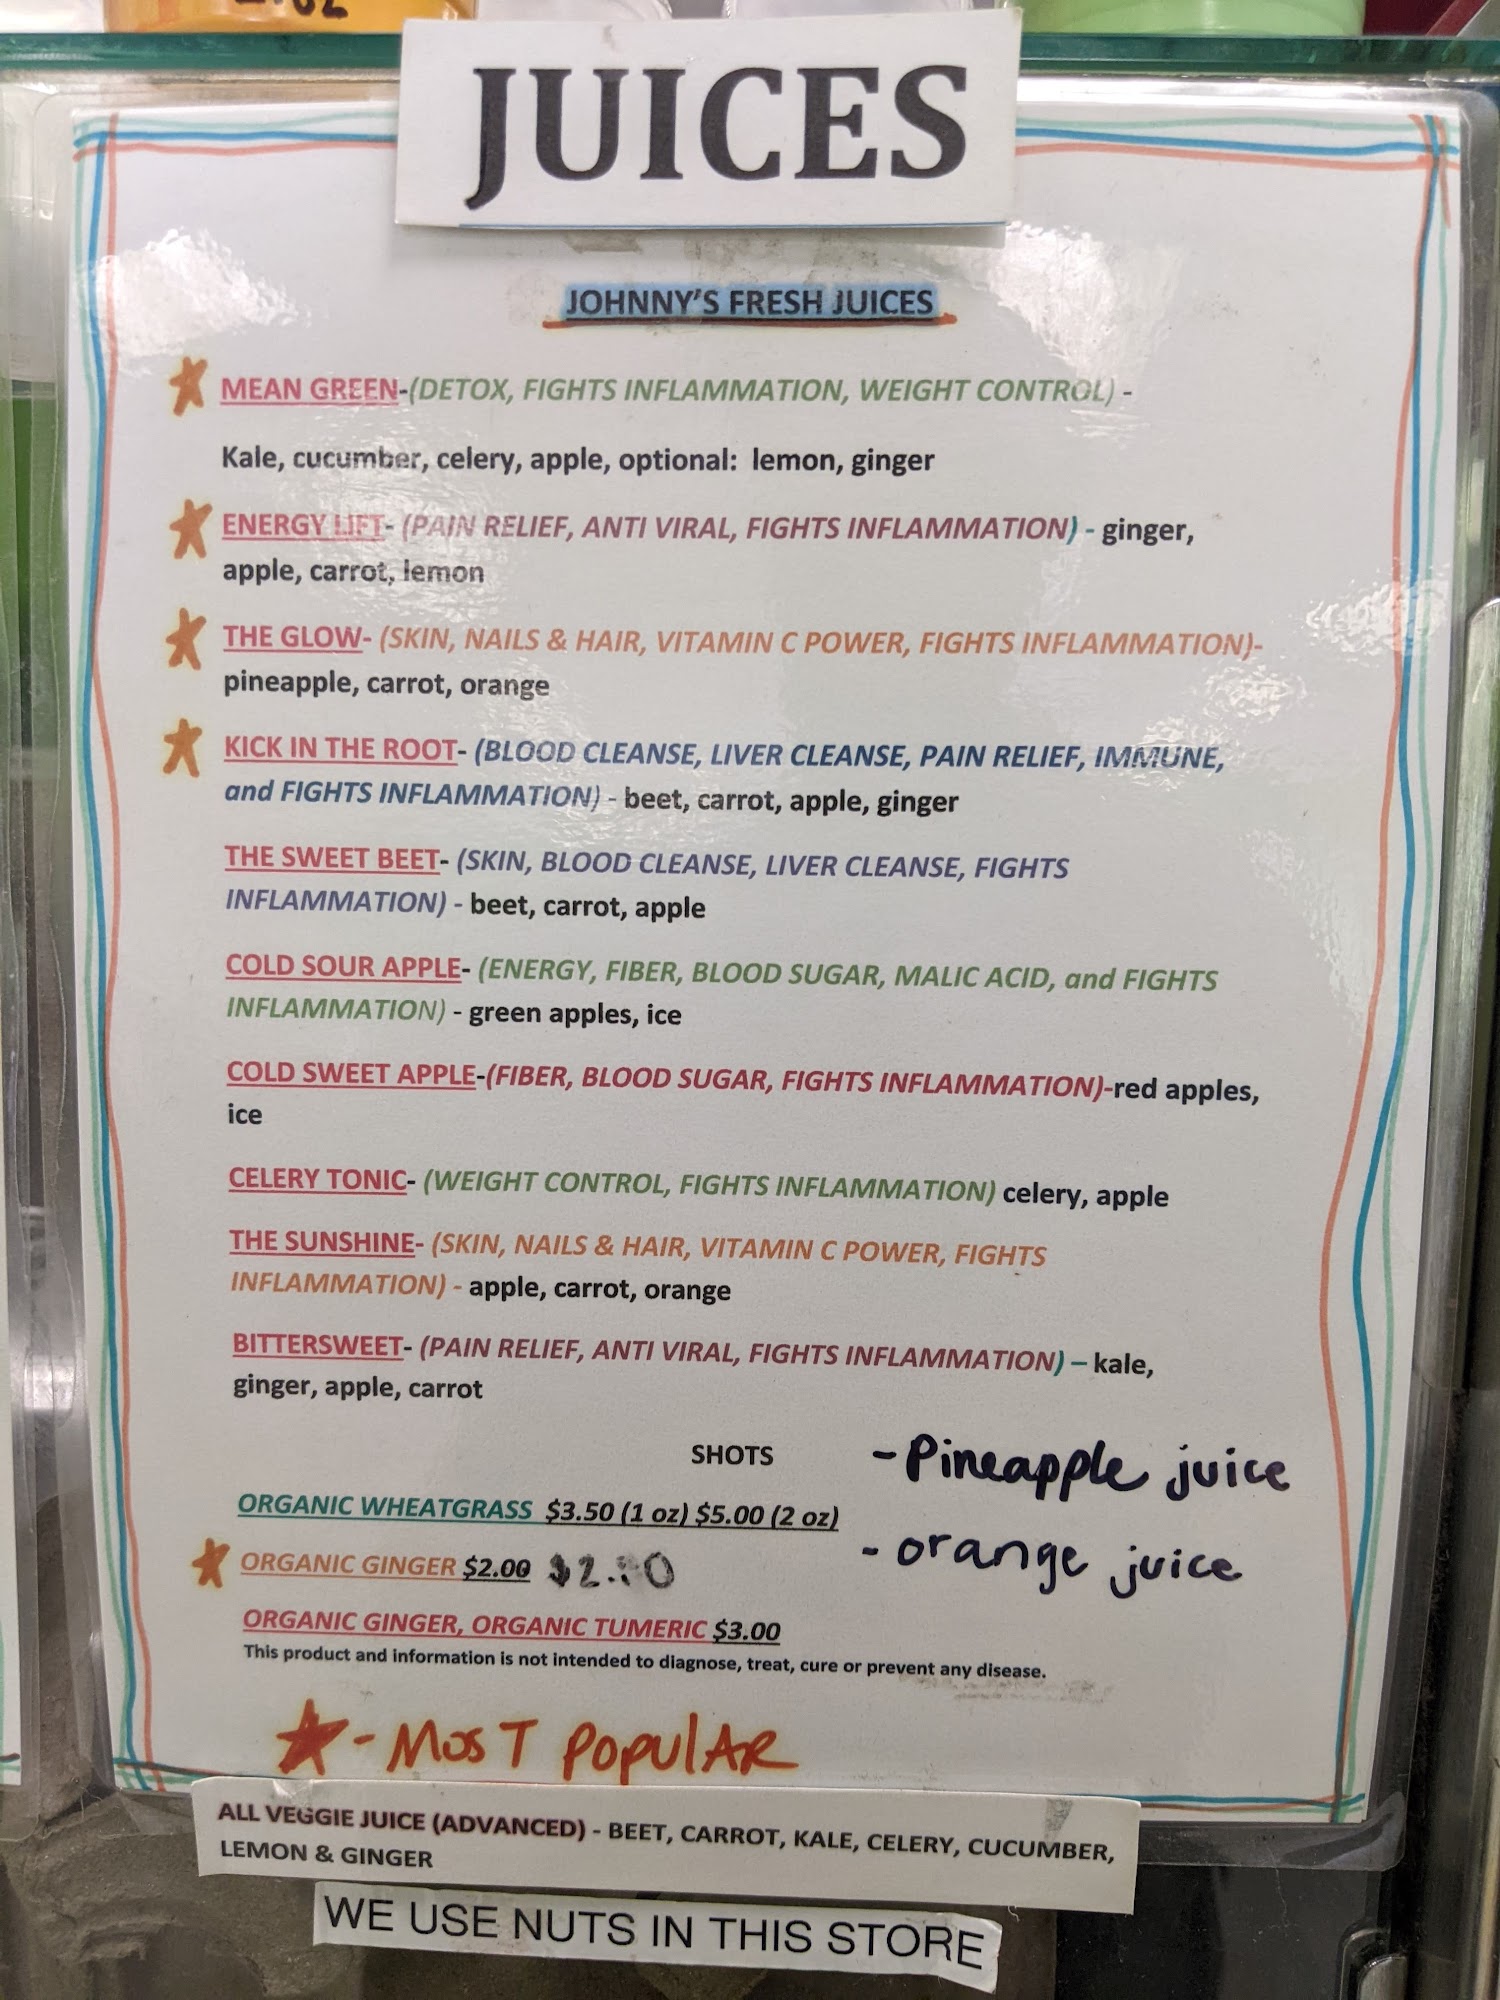 JUICES
JOHNNY'S FRESH JUICES
MEAN GREEN-(DETOX, FIGHTS INFLAMMATION, WEIGHT CONTROL) -
Kale, cucumber, celery, apple, optional: lemon, ginger
ENERGY LIFT- (PAIN RELIEF, ANTI VIRAL, FIGHTS INFLAMMATION) - ginger,
apple, carrot, lemon
THE GLOW- (SKIN, NAILS & HAIR, VITAMIN C POWER, FIGHTS INFLAMMATION)-
pineapple, carrot, orange
KICK IN THE ROOT- (BLOOD CLEANSE, LIVER CLEANSE, PAIN RELIEF, IMMUNE,
and FIGHTS INFLAMMATION) - beet, carrot, apple, ginger
THE SWEET BEET- (SKIN, BLOOD CLEANSE, LIVER CLEANSE, FIGHTS
INFLAMMATION) - beet, carrot, apple
COLD SOUR APPLE- (ENERGY, FIBER, BLOOD SUGAR, MALIC ACID, and FIGHTS
INFLAMMATION) - green apples, ice
COLD SWEET APPLE-(FIBER, BLOOD SUGAR, FIGHTS INFLAMMATION)-red apples,
ice
CELERY TONIC- (WEIGHT CONTROL, FIGHTS INFLAMMATION) celery, apple
THE SUNSHINE- (SKIN, NAILS & HAIR, VITAMIN C POWER, FIGHTS
INFLAMMATION) - apple, carrot, orange
BITTERSWEET- (PAIN RELIEF, ANTI VIRAL, FIGHTS INFLAMMATION) – kale,
ginger, apple, carrot
SHOTS
-Pineapple juice
ORGANIC WHEATGRASS $3.50 (1 oz) $5.00 (2 oz)
-orange juice
ORGANIC GINGER $2.00
ORGANIC GINGER, ORGANIC TUMERIC $3.00
This product and information is not intended to diagnose, treat, cure or prevent any disease.
- MOST POPULAR
ALL VEGGIE JUICE (ADVANCED) - BEET, CARROT, KALE, CELERY, CUCUMBER,
LEMON & GINGER
WE USE NUTS IN THIS STORE